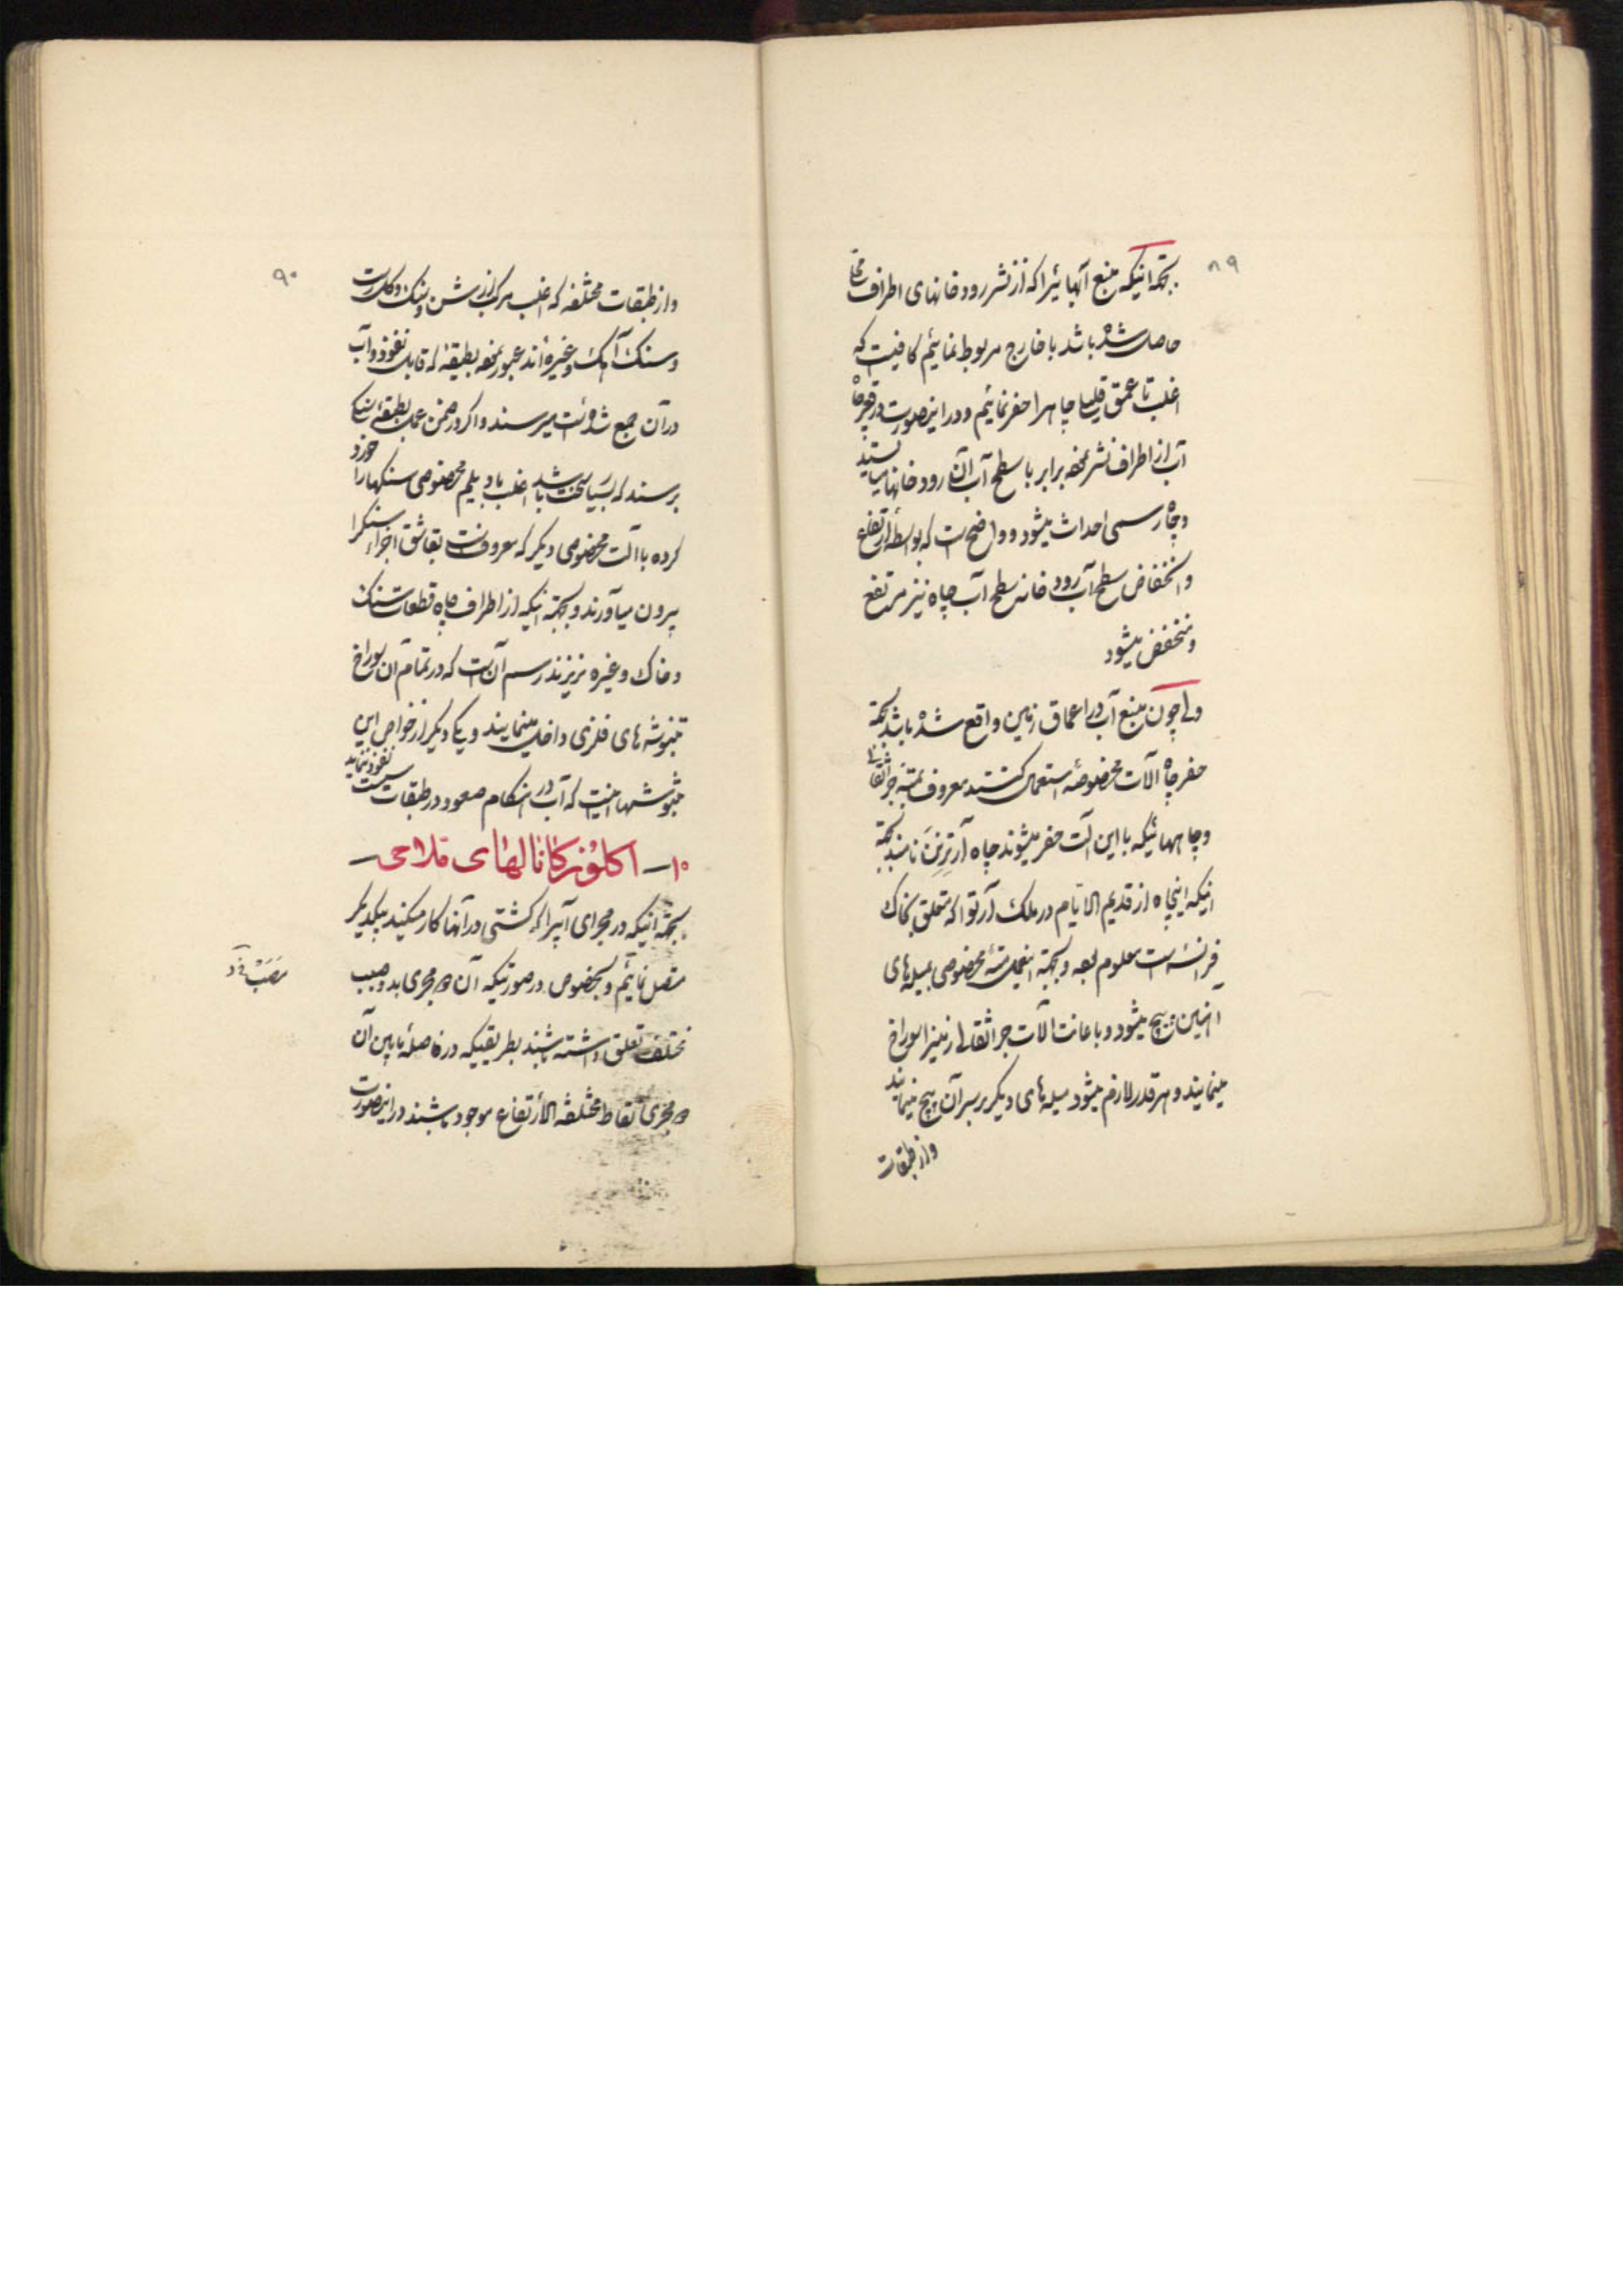 ۸۹
بجهة انیکه منبع آبهائیرا که از نشر رودخانهای اطراف
حاصل شده باشد با خارج مربوط نمائیم کافیست که
اغلب تا عمق قلیلی چاهرا حفر نمائیم و در اینصورت در قعر چاه
آب از اطراف نشر نموده برابر با سطح آب آن رودخانها میایستد
و چاه رسمی احداث میشود و واضح است که بواسطه ارتفاع
و انخفاض سطح آب رودخانه سطح آب چاه نیز مرتفع
و منخفض میشود
ولی چون منبع آب در اعماق زمین واقع شده باشد بجهة
حفر چاه آلات مخصوصه استعمال کنند معروف بمته جراثقال
و چاههائیکه با این آلت حفر میشوند چاه آرتزین نامند بجهة
انیکه اینچاه از قدیم الایام در ملک آرتوا که متعلق بخاک
فرانسه است معلوم بوده و بجهة اینعمل مته مخصوصی بمیله های
آهنین پیچ میشود و باعانت آلات جراثقال زمینرا سوراخ
مینمایند و هر قدر لازم میشود میله های دیگر بر سر آن پیچ مینمایند
و از طبقات
۹۰
و از طبقات مختلفه که اغلب مرکب از شن و سنک و کل رست
و سنک آهک و غیره اند عبور نموده بطبقه که قابل نفوذ و آب
در آن جمع شده است میرسند و اکر در ضمن عمل بطبقه سنکی
برسند که بسیار سخت باشد اغلب با دیلم مخصوصی سنکها را خورد
کرده با آلت مخصوصی دیکر که معروفست بقاشق اجزاء سنکرا
بیرون میآورند و بجهة انیکه از اطراف چاه قطعات سنک
و خاک و غیره نریزند رسم آن است که در تمام آن سوراخ
تنبوشه های فلزی داخل مینمایند و یکی دیکر از خواص این
تنبوشها اینست که آب در هنکام صعود در طبقات سست نفوذ ننماید
۱۰ــ اکلوز کانالهای فلاحی ــ
بجهة انیکه در مجرای آبیرا که کشتی در آنها کار میکنند بیکدیکر
متصل نمائیم و بخصوص در صورتیکه آن دو مجری بدو مصب
مختلف تعلق داشته باشند بطریقیکه در فاصله مابین آن
دو مجری نقاط مختلفة الارتفاع موجود باشند در اینصورت